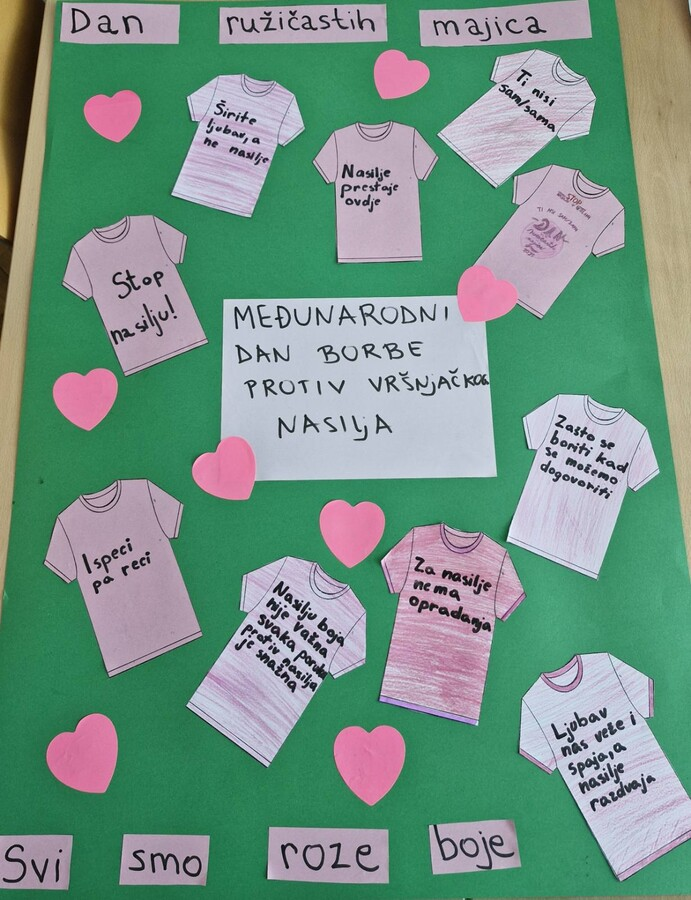 Dan ružičastih majica
Širite
ljubav, a
ne nasilje
Nasilje
prestaje
ovdje
Ti nisi
sam/sama
STOP
DAN
Stop
nasilju!
MEĐUNARODNI
DAN BORBE
PROTIV VRŠNJAČKOG
NASILJA
Zašto se
boriti kad
se možemo
dogovoriti
Ispeci
pa reci
Nasilju boja
nije važna
svaka poruka
protiv nasilja
je snažna
Za nasilje
nema
opradanja
Ljubav
nas veže i
spaja, a
nasilje
razdvaja
Svi smo roze boje